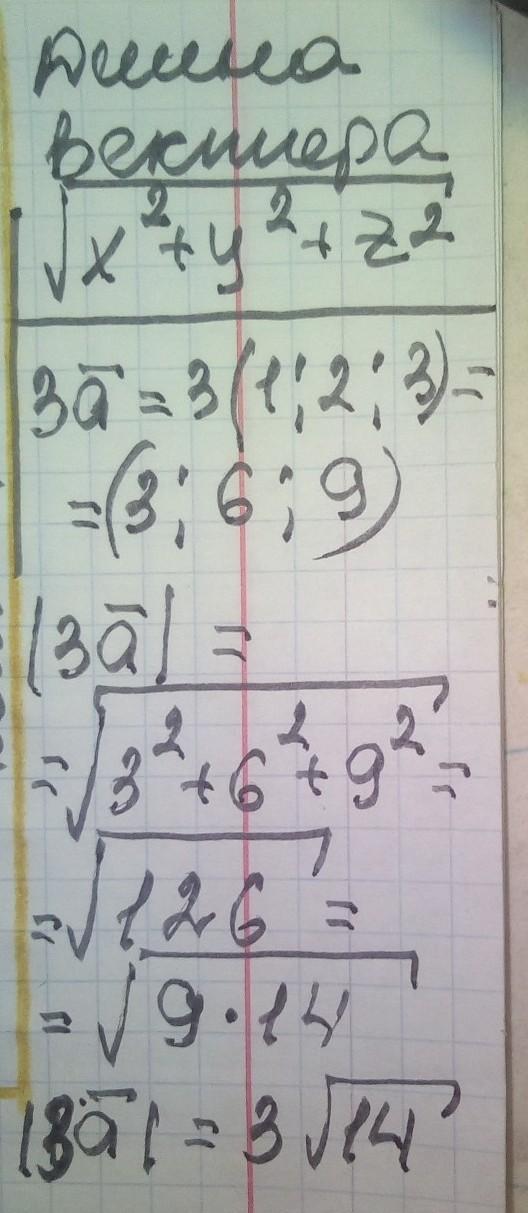 Длина
вектора
√x²+y²+z²
3a̅ = 3(1; 2; 3) =
= (3; 6; 9)
|3a̅| =
= √3²+6²+9² =
= √126 =
= √9·14
|3a̅| = 3√14